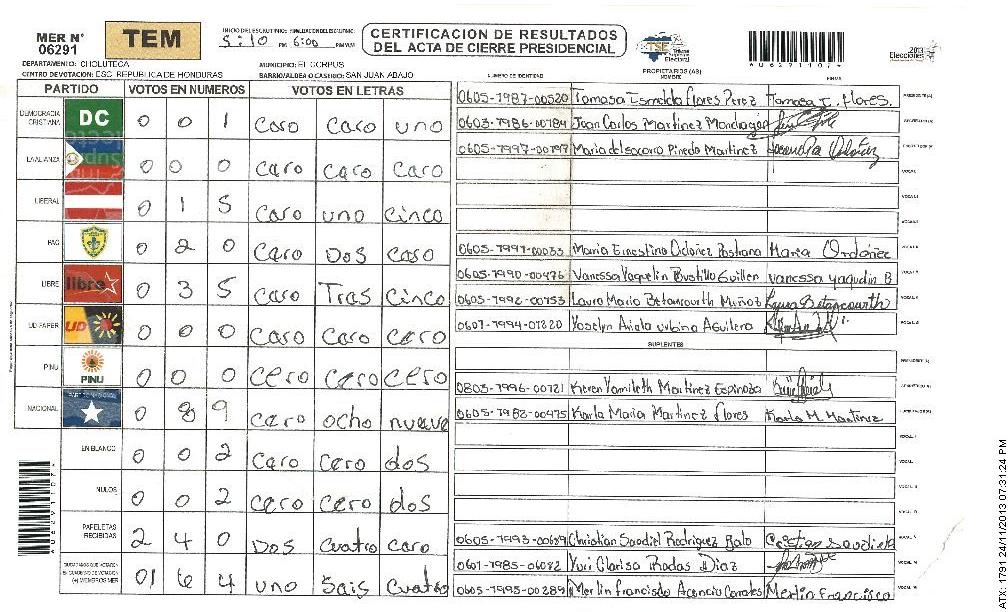 MER N° 06291
TEM
INICIO DEL ESCRUTINIO: 5:10 PM FINALIZACION DEL ESCRUTINIO: 6:00 PM
CERTIFICACION DE RESULTADOS
DEL ACTA DE CIERRE PRESIDENCIAL
TSE Tribunal Supremo Electoral
2013 Elecciones
DEPARTAMENTO: CHOLUTECA MUNICIPIO: El CORPUS
CENTRO DE VOTACION: ESC. REPUBLICA DE HONDURAS BARRIO/ALDEA O CASERIO: SAN JUAN ABAJO
PARTIDO VOTOS EN NUMEROS VOTOS EN LETRAS
DEMOCRACIA CRISTIANA DC 0 0 1 Caro Caro uno
LA ALIANZA 0 0 0 Caro Caro Caro
LIBERAL 0 1 5 Caro uno Cinco
PAC 0 2 0 Caro Dos Caro
LIBRE libre 0 3 5 Caro Tras Cinco
UD-FAPER UD 0 0 0 Caro Caro Cero
PINU PINU 0 0 0 Cero Cero Cero
NACIONAL 0 8 9 Cero ocho nueve
EN BLANCO 0 0 2 Caro Cero dos
NULOS 0 0 2 Cero Cero dos
PAPELETAS RECIBIDAS 2 4 0 Dos Cuatro Caro
CIUDADANOS QUE VOTARON (+) MIEMBROS MER 01 6 4 uno Sais Cuatro
NUMERO DE IDENTIDAD PROPIETARIOS (AS) NOMBRE FIRMA
0605-1987-00520 Tomasa Esmelda Flores Perez Tomasa E. Flores.
0603-1986-00784 Juan Carlos Martinez Mondragon
0605-1997-00797 Maria del socorro Pinedo Martinez
0605-1991-00033 Maria Ernestina Ordoñez Pastrana Maria Ordoñez
0605-1990-00476 Vanessa Yaquelin Bustillo Guillen vanessa yaquelin B
0605-1992-00753 Laura Maria Betancourth Muñoz Laura Betancourth
0607-1994-01220 Yoselyn Ariela urbina Aguilera
SUPLENTES
0803-1996-00721 Keren Yamileth Martinez Espinoza
0605-1982-00475 Karla Maria Martinez Flores Karla M. Martinez
0605-1993-00689 Christian Saudiel Rodriguez
0601-1985-06082 Yuri Clarisa Rodas Diaz
0605-1995-00289 Merlin francisco Merlin Francisco
AU6291107+
STX: 1791 24/11/2013 07:31:24 PM